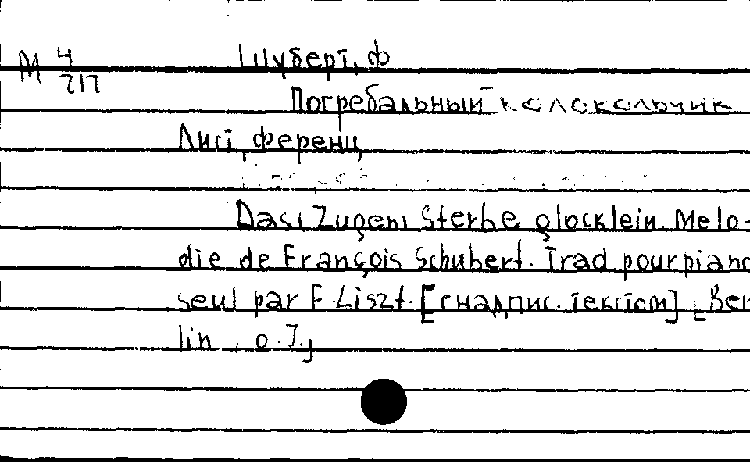 М 4/717 Шуберт, Ф
Погребальный колокольчик
Лист, Ференц
Das Zugen Sterbe glocklein. Melo-
die de François Schubert. Trad pour piano
seul par F. Liszt. [с надпис. текстом] Ber
lin